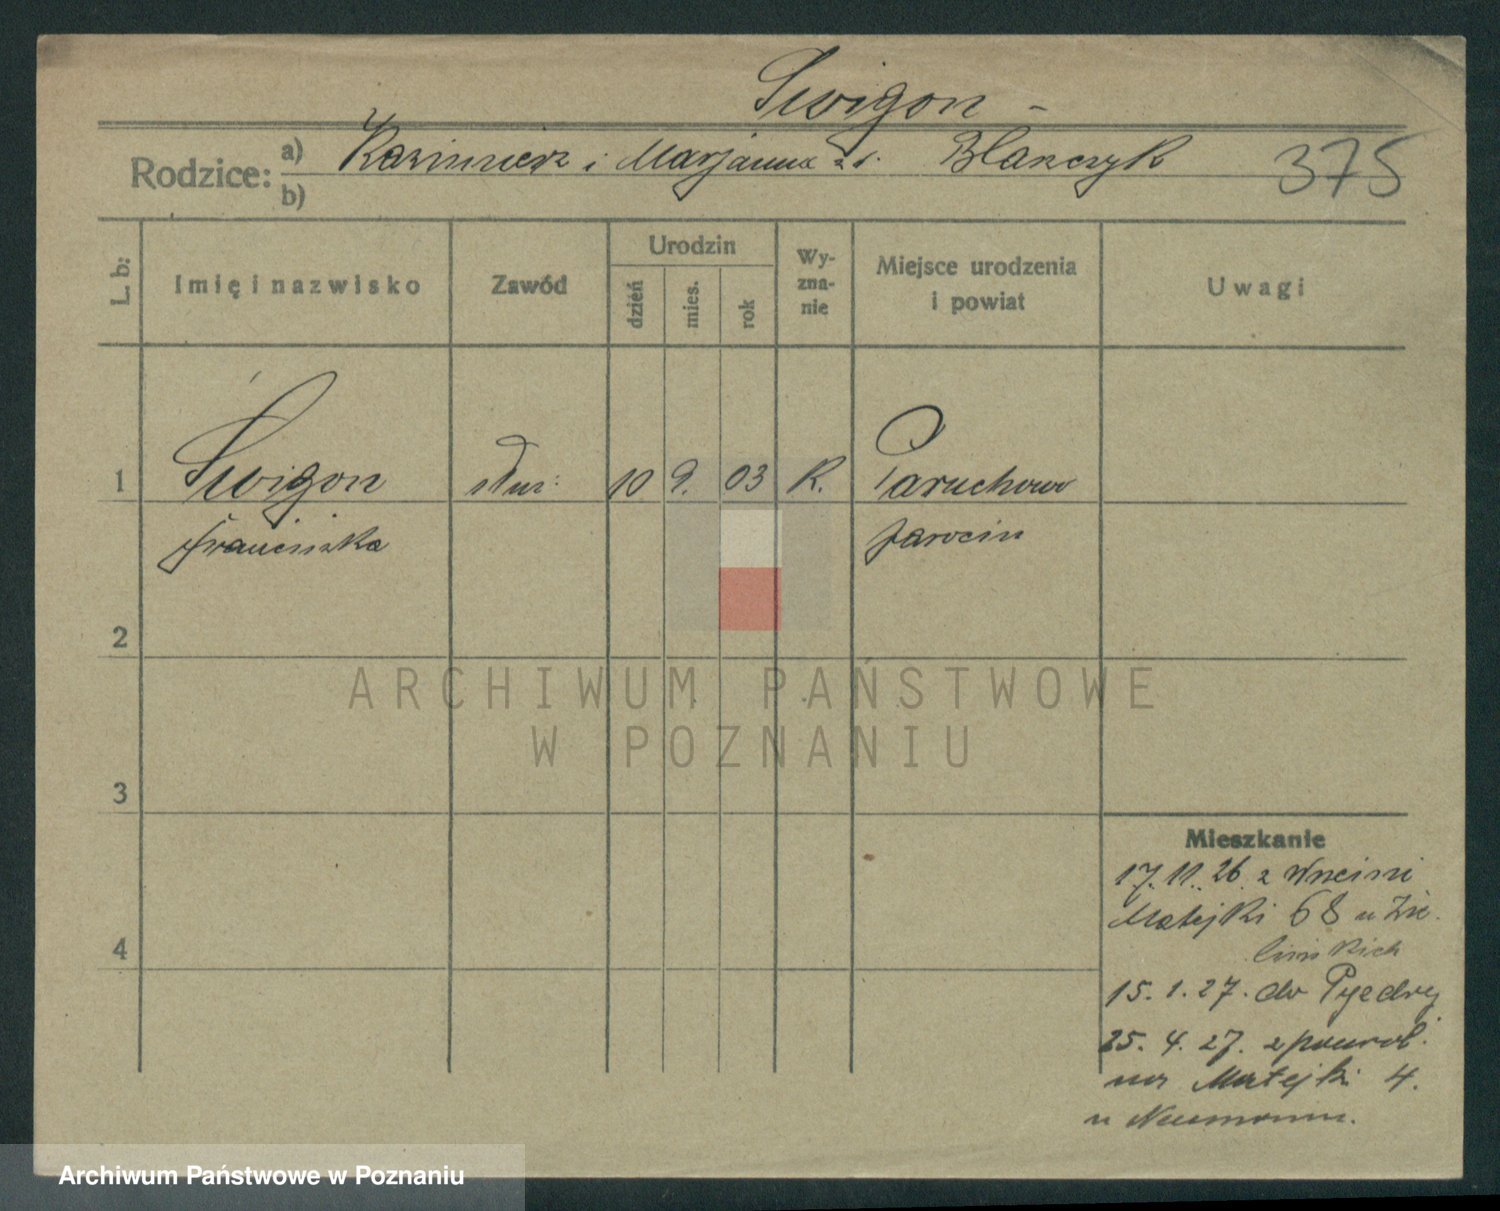 Świgon -
Rodzice: a) Kazimierz i Marjanna z d. Blaszczyk
b)
375
L. b:
Imię i nazwisko
Zawód
Urodzin
dzień
mies.
rok
Wy-
zna-
nie
Miejsce urodzenia
i powiat
Uwagi
1 Świgon służ: 10 9. 03 K. Paruchowo
Franciszka Jarocin
2
ARCHIWUM PAŃSTWOWE
W POZNANIU
3
Mieszkanie
17. 11. 26 z
Matejki 68 u Zie-
linskich
4
15. 1. 27. do
25. 4. 27. z powrot.
na Matejki 4.
u Neumann.
Archiwum Państwowe w Poznaniu